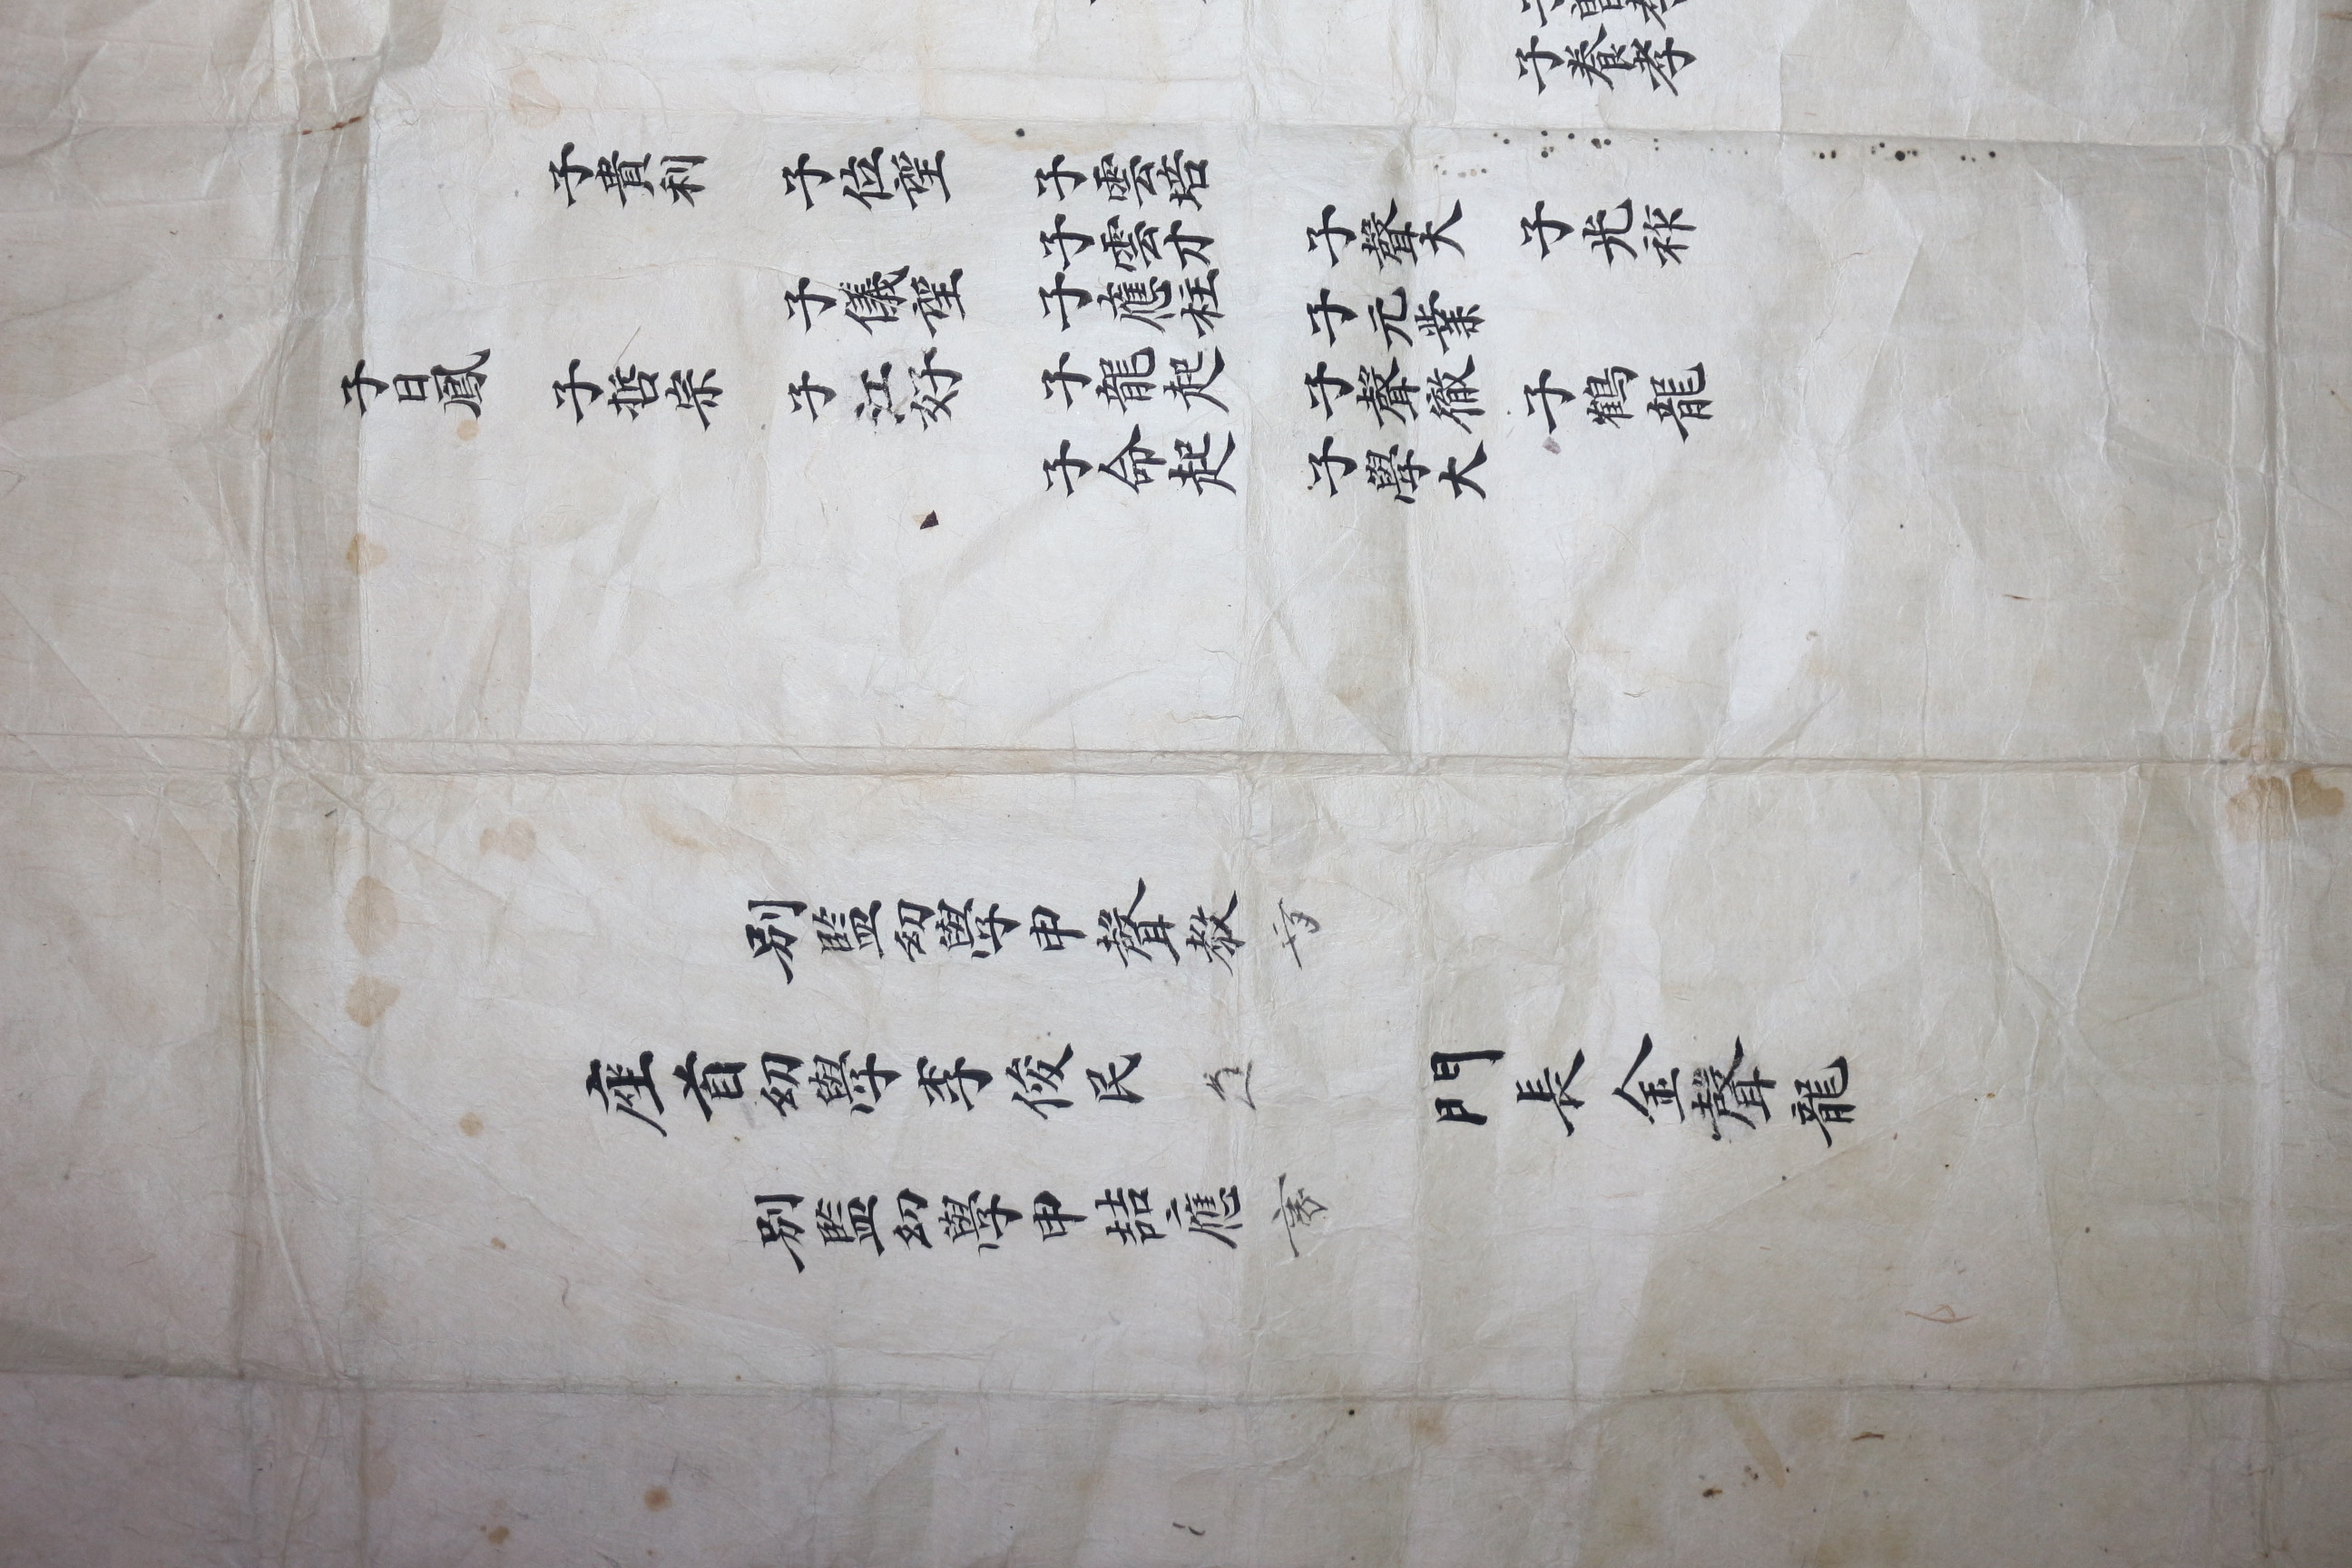 子養孝
子貴利
子位
子雲培
子雲才
子聲大
子光祚
子儀
子應柱
子元業
子日鳳
子哲崇
子江好
子龍起
子聲徹
子鶴龍
子命起
子學大
別監幼學申聲教
座首幼學李俊民
門長金聲龍
別監幼學申喆應